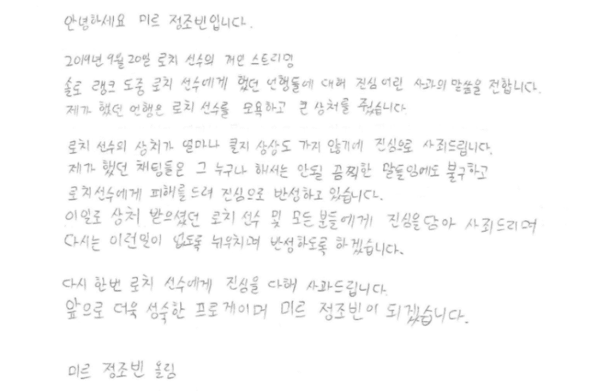 안녕하세요 미르 정조빈입니다.
2019년 9월 20일 로치 선수의 개인 스트리밍
솔로 랭크 도중 로치 선수에게 했던 언행들에 대해 진심어린 사과의 말씀을 전합니다.
제가 했던 언행은 로치 선수를 모욕하고 큰 상처를 줬습니다
로치 선수의 상처가 얼마나 클지 상상도 가지 않기에 진심으로 사죄드립니다.
제가 했던 채팅들은 그 누구나 해서는 안될 끔찍한 말들임에도 불구하고
로치선수에게 피해를드려 진심으로 반성하고 있습니다.
이일로 상처 받으셨던 로치 선수 및 모든분들에게 진심을담아 사죄드리며
다시는 이런일이 없도록 뉘우치며 반성하도록 하겠습니다.
다시 한번 로치 선수에게 진심을 다해 사과드립니다.
앞으로 더욱 성숙한 프로게이머 미르 정조빈이 되겠습니다.
미르 정조빈 올림